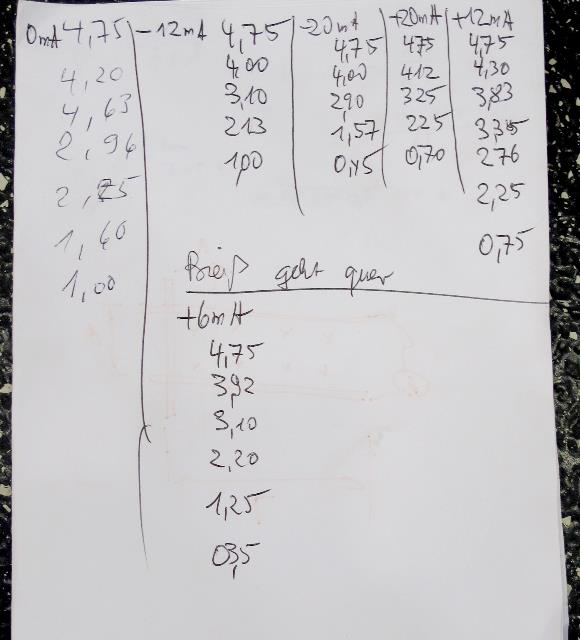 0mA 4,75 -12mA 4,75 -20mA +20mA +12mA
4,75 475 4,75
4,20 4,00 4,00 412 4,30
4,63 3,10 2,90 325 3,83
2,96 2,13 1,57 225 3,35
1,00 0,45 0,70 2,76
2,25 2,25
1,60 0,75
1,00
geht quer
+6mA
4,75
3,92
3,10
2,20
1,25
0,35